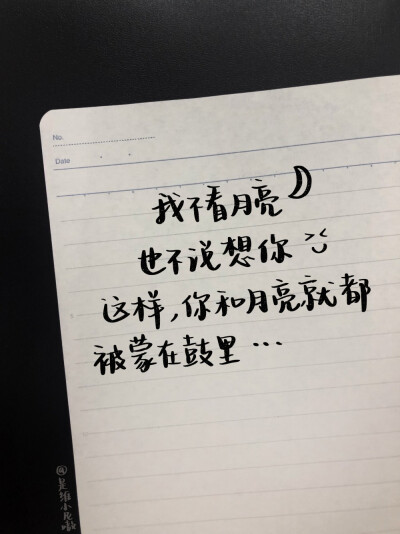 No.
Date
我不看月亮
也不说想你
这样,你和月亮就都
被蒙在鼓里…